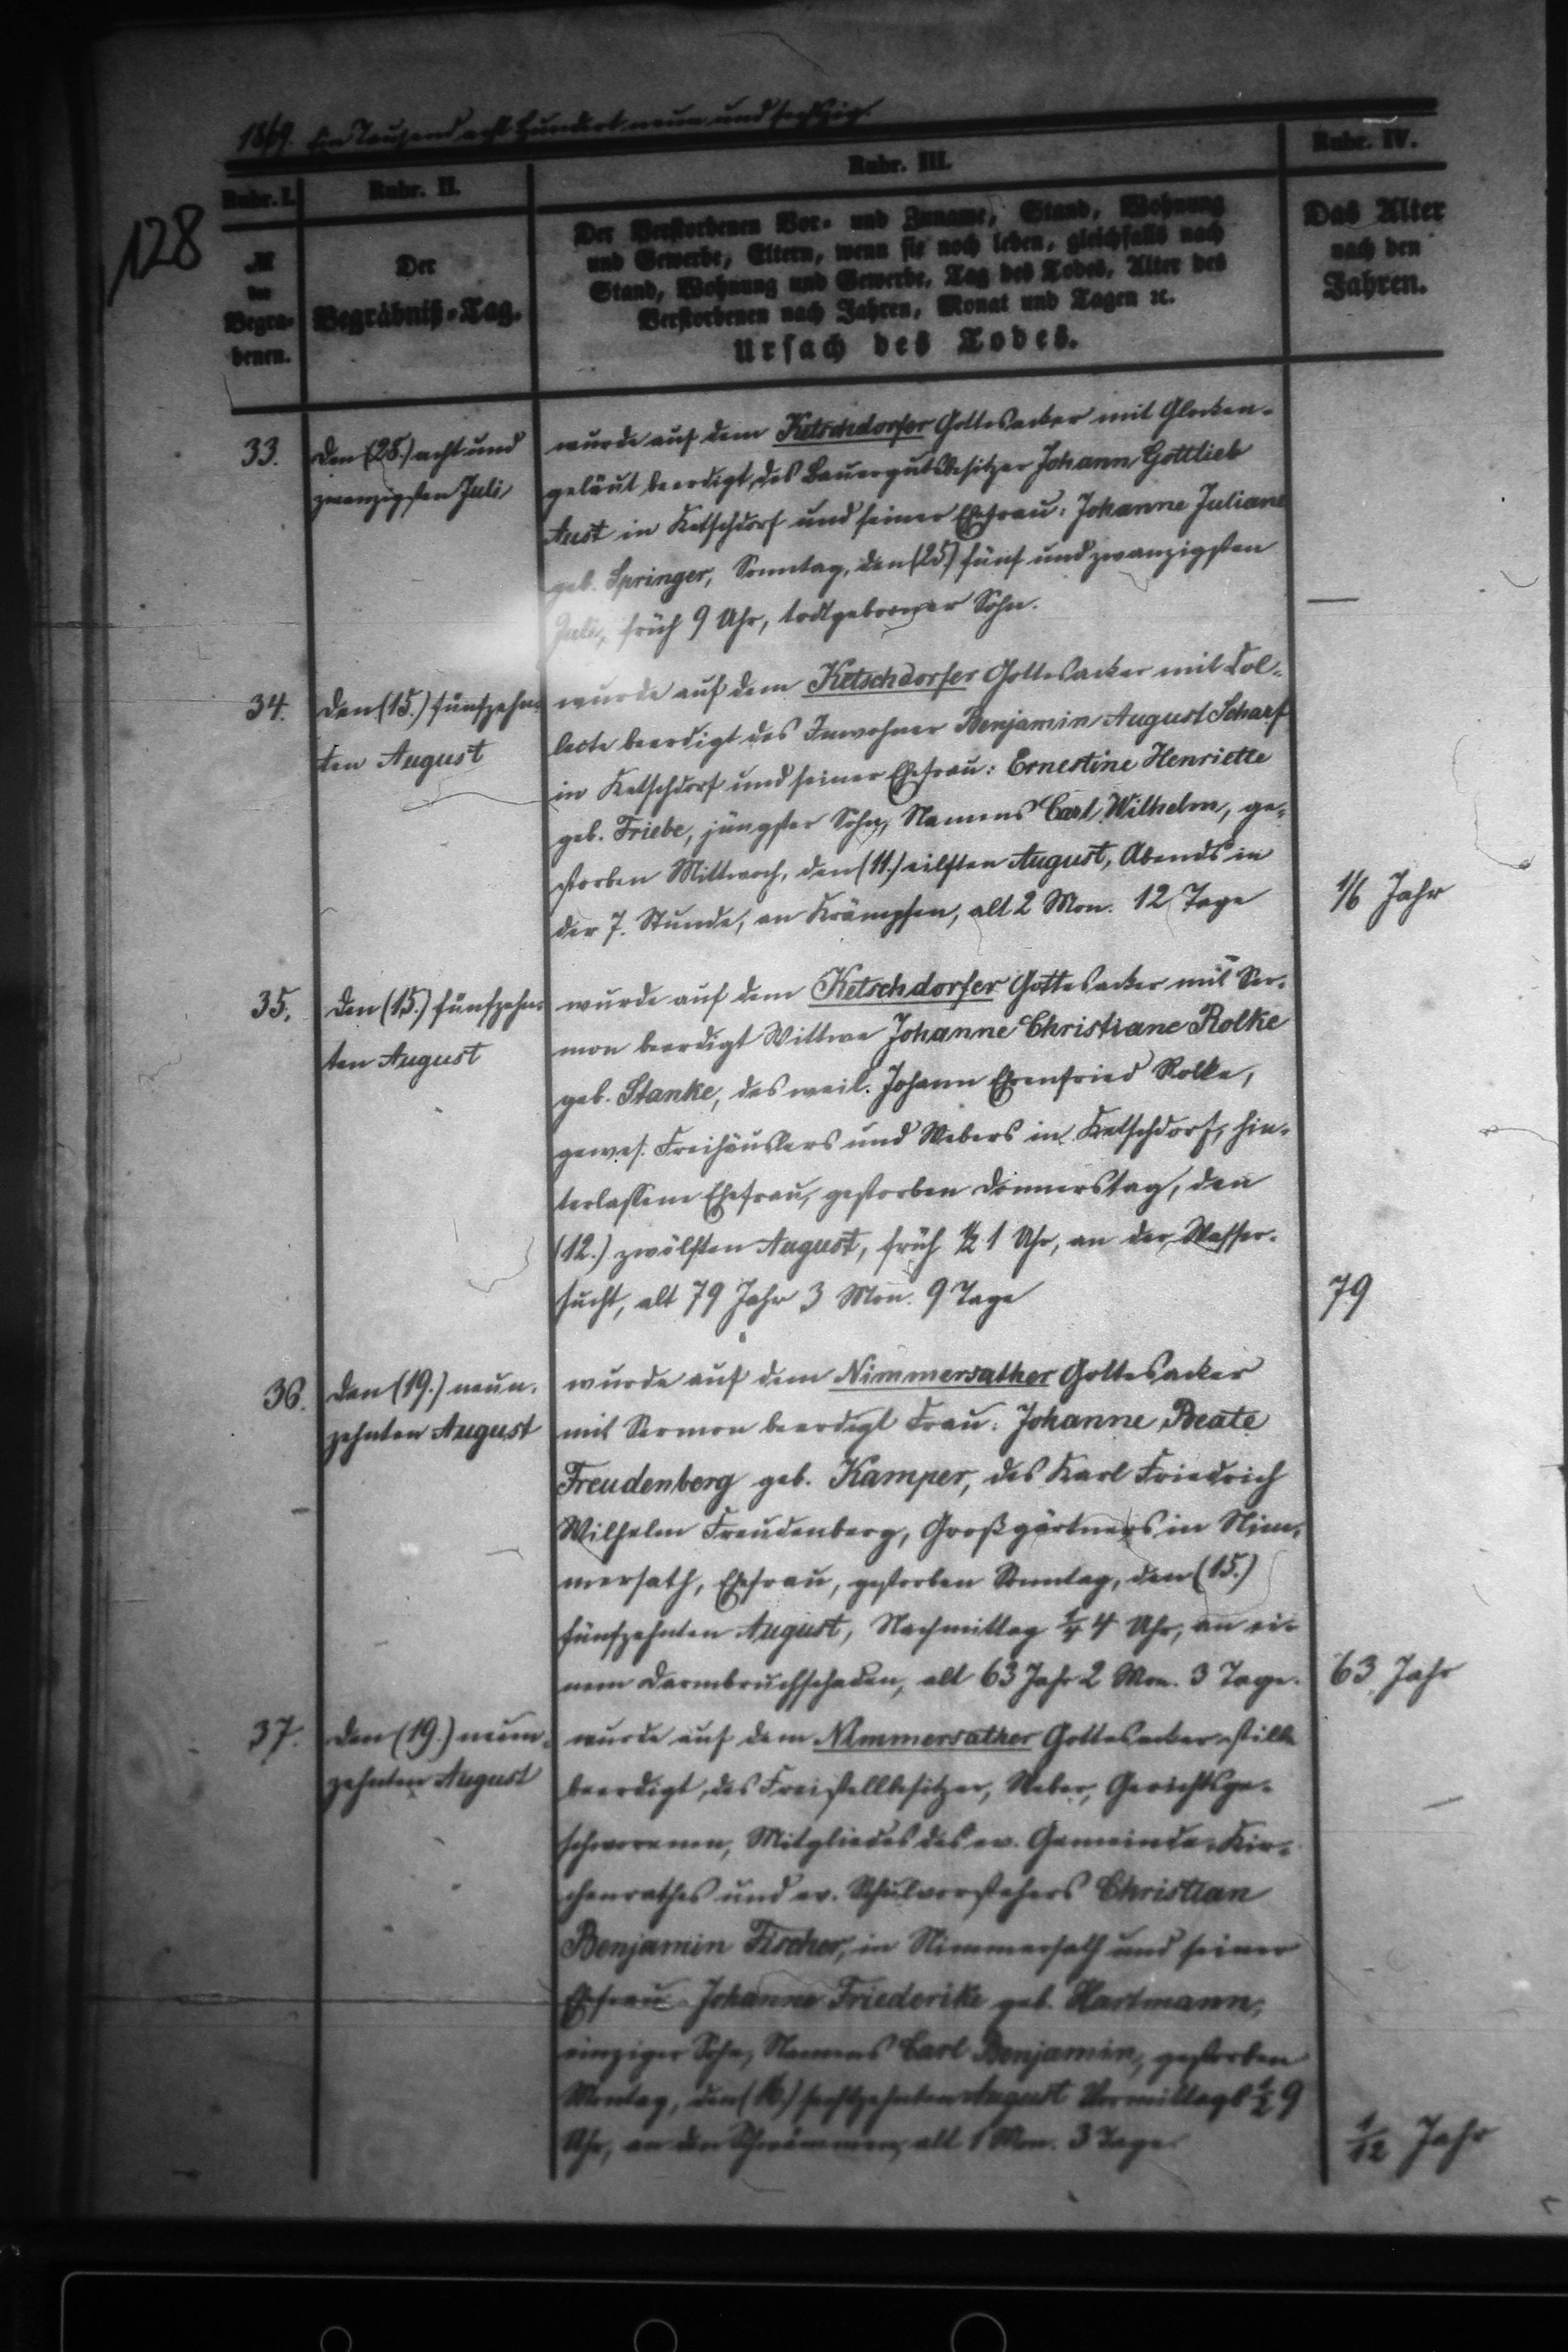 1869. Ein Tausend acht hundert neun und sechszig.
128
Rubr. I.
Rubr. II.
Rubr. III.
Rubr. IV.
№
der
Begra-
benen.
Der
Begräbniß-Tag.
Der Verstorbenen Vor- und Zuname, Stand, Wohnung
und Gewerbe, Eltern, wenn sie noch leben, gleichfalls nach
Stand, Wohnung und Gewerbe, Tag des Todes, Alter des
Verstorbenen nach Jahren, Monat und Tagen ꝛc.
Ursach des Todes.
Das Alter
nach den
Jahren.
33.
den (28.) acht und
zwanzigsten Juli
wurde auf dem Ketschdorfer Gottesacker mit Glocken-
geläut beerdigt, des Bauergutsbesitzer Johann Gottlieb
Aust in Ketschdorf und seiner Ehefrau: Johanne Juliane
geb. Springer, Sonntag, den (25) fünf und zwanzigsten
Juli, früh 9 Uhr, todtgeborener Sohn.
—
34.
den (15.) fünfzehn-
ten August
wurde auf dem Ketschdorfer Gottesacker mit Col-
lecte beerdigt des Inwohner Benjamin August Scharf
in Ketschdorf und seiner Ehefrau: Ernestine Henriette
geb. Friebe, jüngster Sohn, Namens Carl Wilhelm, ge-
storben Mittwoch, den (11.) eilften August, Abends in
der 7. Stunde, an Krämpfen, alt 2 Mon. 12 Tage
1/6 Jahr
35.
den (15.) fünfzehn-
ten August
wurde auf dem Ketschdorfer Gottesacker mit Ser-
mon beerdigt Wittwe Johanne Christiane Rolke
geb. Stanke, des weil. Johann Ehrenfried Rolke,
gewes. Freihäuslers und Webers in Ketschdorf, hin-
terlassene Ehefrau, gestorben Donnerstag, den
(12.) zwölften August, früh ½ 1 Uhr, an der Wasser-
sucht, alt 79 Jahr 3 Mon. 9 Tage
79
36.
den (19.) neun-
zehnten August
wurde auf dem Nimmersather Gottesacker
mit Sermon beerdigt Frau: Johanne Beate
Freudenberg geb. Kamper, des Karl Friedrich
Wilhelm Freudenberg, Großgärtners in Nim-
mersath, Ehefrau, gestorben Sonntag, den (15.)
fünfzehnten August, Nachmittag ¼ 4 Uhr, an ei-
nem Darmbruchschaden, alt 63 Jahr 2 Mon. 3 Tage.
63 Jahr
37.
den (19.) neun-
zehnten August
wurde auf dem Nimmersather Gottesacker stille
beerdigt, des Freistellbesitzer, Weber, Gerichtsge-
schworenen, Mitgliedes des ev. Gemeinde-Kir-
chenrathes und ev. Schulvorstehers Christian
Benjamin Fischer, in Nimmersath und seiner
Ehefrau Johanne Friederike geb. Hartmann,
einziger Sohn, Namens Carl Benjamin, gestorben
Montag, den (16.) sechszehnten August Vormittags ½ 9
Uhr, an den Schwämmen, alt 1 Mon. 3 Tage.
1/12 Jahr